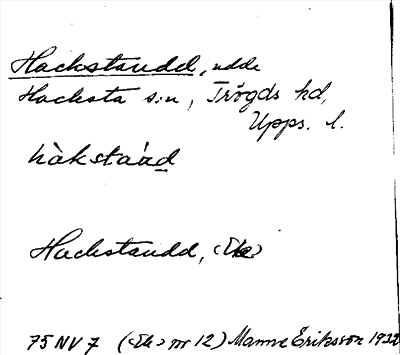 Hackstaudd, udde
Hacksta s:n, Trögds hd,
Upps. l.
Hackstaudd,
75 NV 7 ( nr 12) Manne Eriksson 1932